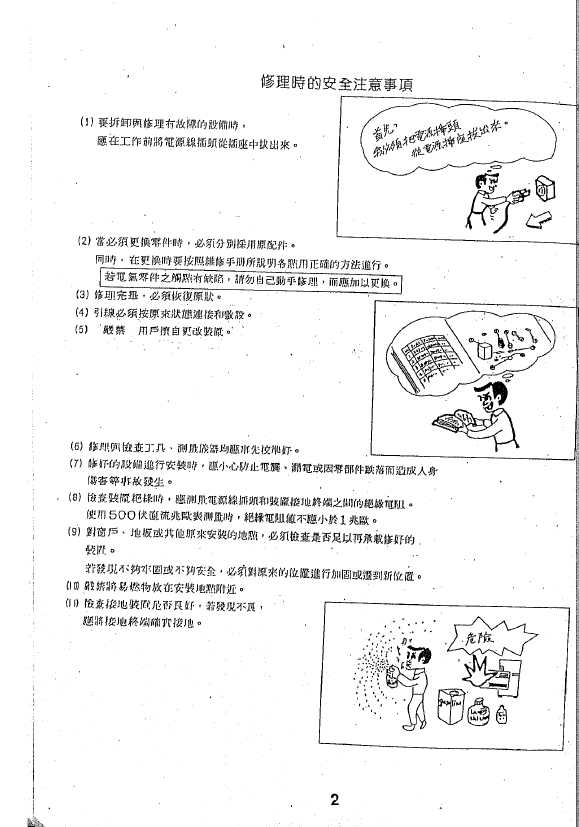 修理時的安全注意事項
(1) 要拆卸與修理有故障的設備時，
應在工作前將電源線插頭從插座中拔出來。
首先，
必須把電源插頭
從電源插座拔出來。
(2) 當必須更換零件時，必須分別採用原配件。
同時，在更換時要按照維修手冊所說明各點用正確的方法進行。
若電氣零件之觸點有缺陷，請勿自己動手修理，而應加以更換。
(3) 修理完畢，必須恢復原狀。
(4) 引線必須按原來狀態連接和敷設。
(5) 嚴禁 用戶擅自更改裝置。
(6) 修理與檢查工具、測量儀器均應事先校準好。
(7) 修好的設備進行安裝時，應小心防止電觸、漏電或因零部件跌落而造成人身
傷害等事故發生。
(8) 檢查裝置絕緣時，應測量電源線插頭和裝置接地終端之間的絕緣電阻。
使用500伏直流兆歐表測量時，絕緣電阻值不應小於1兆歐。
(9) 對窗戶、地板或其他原來安裝的地點，必須檢查是否足以再承載修好的
裝置。
若發現不夠牢固或不夠安全，必須對原來的位置進行加固或遷到新位置。
(10) 嚴禁將易燃物放在安裝地點附近。
(11) 檢查接地裝置是否良好，若發現不良，
應將接地終端確實接地。
危險
gasoline
2